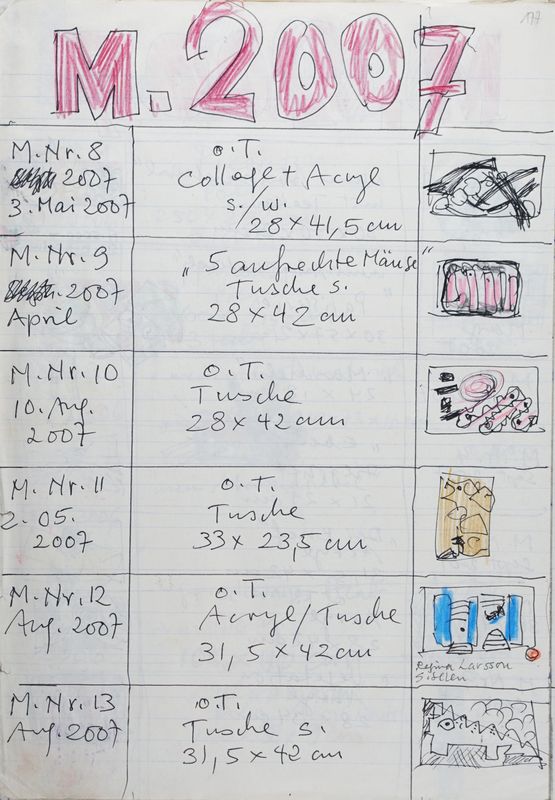 177
M. 2007
M. Nr. 8
2007
3. Mai 2007
o.T.
Collage + Acryl
s./w.
28 x 41,5 cm
M. Nr. 9
2007
April
„5 aufrechte Mäuse"
Tusche s.
28 x 42 cm
M. Nr. 10
10. Aug.
2007
o.T.
Tusche
28 x 42 cm
M. Nr. 11
2. 05.
2007
o.T.
Tusche
33 x 23,5 cm
M. Nr. 12
Aug. 2007
o.T.
Acryl / Tusche
31,5 x 42 cm
Regina Larsson
M. Nr. 13
Aug. 2007
o.T.
Tusche s.
31,5 x 42 cm